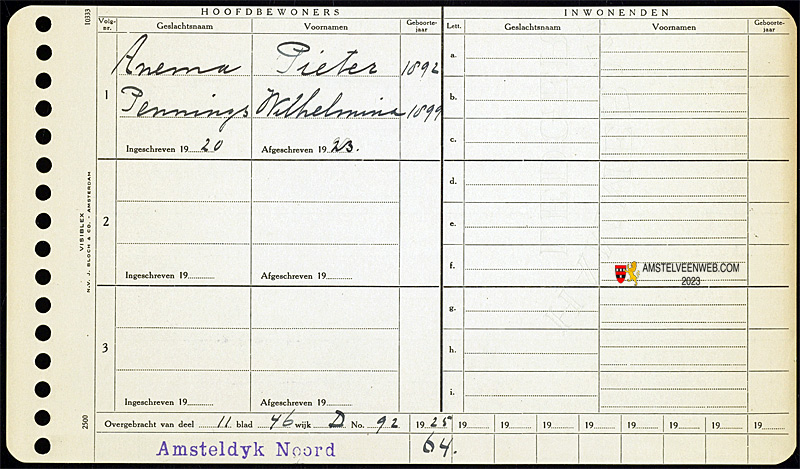 HOOFDBEWONERS
INWONENDEN
Volg-nr.
Geslachtsnaam
Voornamen
Geboorte-jaar
Lett.
Geslachtsnaam
Voornamen
Geboorte-jaar
1
Anema Pieter 1892
Pennings Wilhelmina 1899
Ingeschreven 1920
Afgeschreven 1923.
2
Ingeschreven 19
Afgeschreven 19
3
Ingeschreven 19
Afgeschreven 19
a.
b.
c.
d.
e.
f.
g.
h.
i.
AMSTELVEENWEB.COM
2023
Overgebracht van deel 11 blad 46 wijk D No. 92 1925 19 19 19 19 19 19 19 19
Amsteldyk Noord
64.
10333
VISIBLEX
N.V. J. BLOCH & CO. - AMSTERDAM
2500